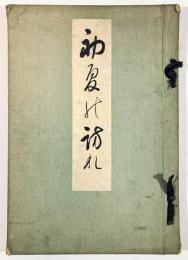 初夏の訪れ